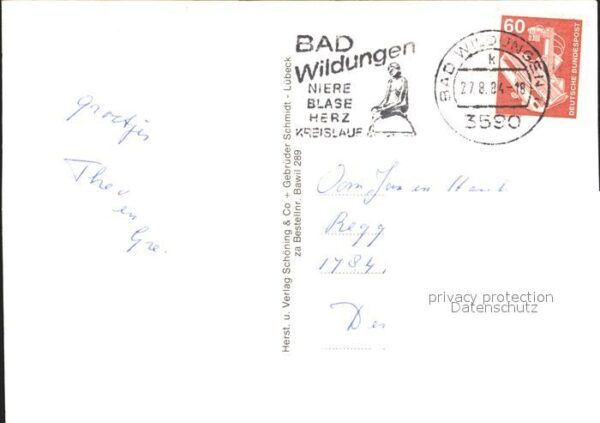 BAD
Wildungen
NIERE
BLASE
HERZ
KREISLAUF
BAD WILDUNGEN
k
27.8.84-18
3590
60
DEUTSCHE BUNDESPOST
Groetjes
Theo
en
Gre.
Herst. u. Verlag Schöning & Co + Gebrüder Schmidt - Lübeck
za Bestellnr. Bawil 289
Oom Jan en
1784,
privacy protection
Datenschutz